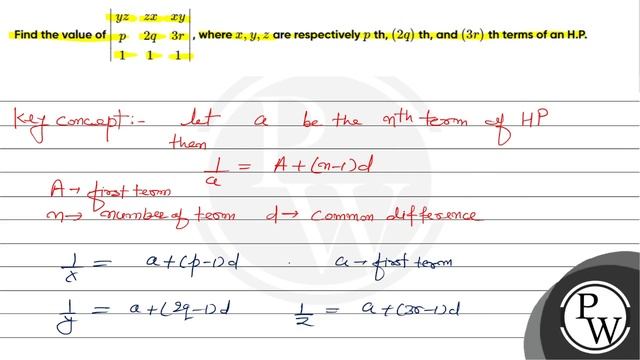 Find the value of | yz zx xy |
| p 2q 3r | , where x, y, z are respectively p th, (2q) th, and (3r) th terms of an H.P.
| 1 1 1 |
Key concept:- let a be the nth term of HP
then
1/a = A+(n-1)d
A→ first term
n→ number of term d→ common difference
1/x = a+(p-1)d a→ first term
1/y = a+(2q-1)d 1/z = a+(3r-1)d
PW